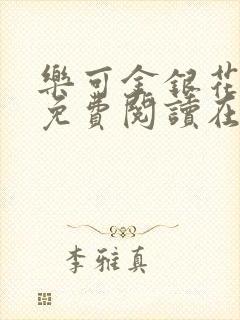 樂可金銀花
免費閱讀在
李雅真